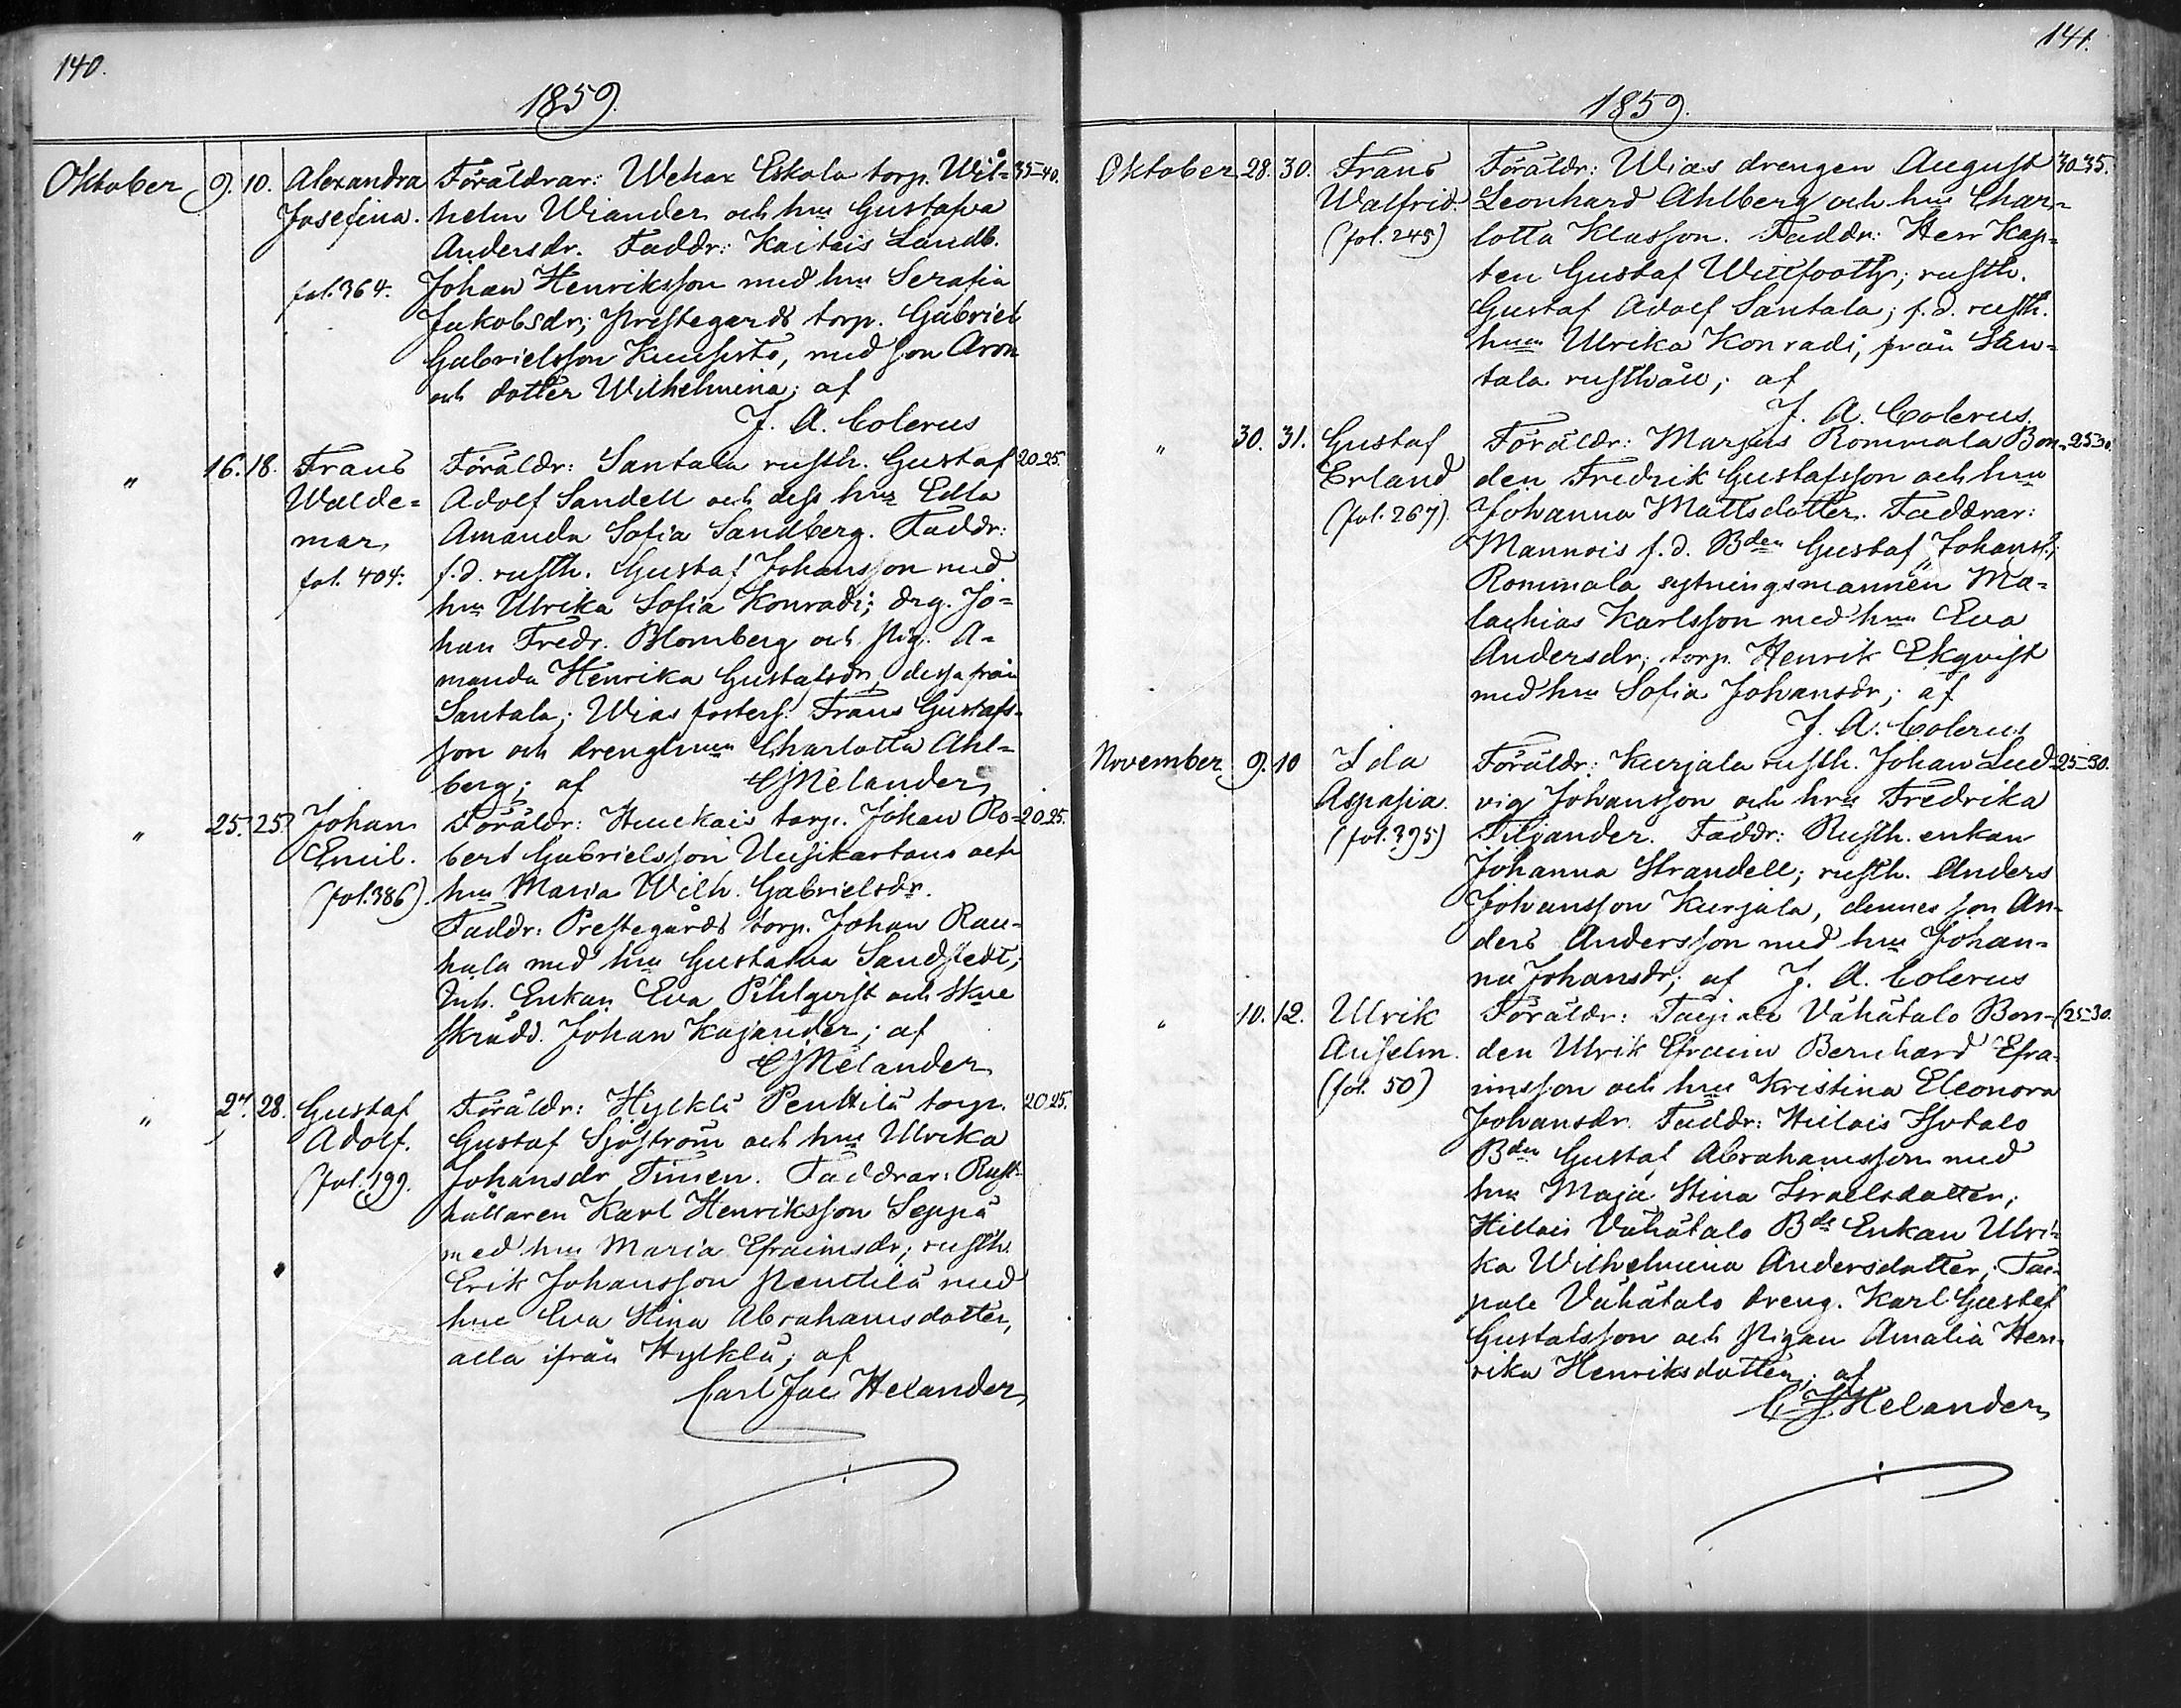 140.
1859.
Oktober 9. 10. Alexandra Föräldrar: Wehax Eskola torp. Wil= 35-40.
Josefina. helm Wiander och hru Gustafva
Andersdr. Faddr: Kaitais Landb.
fol. 364. Johan Henriksson med hru Serafia
Jakobsdr; prestegårds torp. Gabriel
Gabrielsson Kuusisto, med son Aron
och dotter Wilhelmina; af
J. A. Colerus
" 16. 18. Frans Föräldr: Santala rusth. Gustaf 20.25.
Walde= Adolf Sandell och dess hru Edla
mar, Amanda Sofia Sandberg. Faddr:
fol. 404. f.d. rusth. Gustaf Johansson med
hru Ulrika Sofia Konradi; drg. Jo=
han Fredr. Blomberg och pig. A=
manda Henrika Gustafsdr, dessa från
Santala; Wias fosters. Frans Gustafs=
son och drenghrun Charlotta Ahl=
berg; af CJHelander
" 25. 25. Johan Föräldr: Huukais torp. Johan Ro= 20.25.
Emil. bert Gabrielsson Uusikartano och
(fol. 386). hru Maria Wilh. Gabrielsdr.
Faddr: Prestegårds torp. Johan Rau=
hala med hru Gustafva Sandstedt;
Inh. Enkan Eva Pihlqvist och
skrädd. Johan Kajander; af
CJHelander
" 27. 28. Gustaf Föräldr: Hylklä Penttilä torp. 20.25.
Adolf. Gustaf Sjöström och hru Ulrika
(fol. 199. Johansdr Timen. Faddrar: Rust=
hållaren Karl Henriksson Seppä
med hru Maria Efraimsdr; rusth.
Erik Johansson Penttilä med
hru Eva Stina Abrahamsdotter,
alla ifrån Hylklä; af
Carl Jac Helander
141.
1859.
Oktober 28. 30. Frans Föräldr: Wias drengen August 30-35.
Walfrid. Leonhard Ahlberg och hru Char=
(fol. 245) lotta Klasson. Faddr: Herr Kap=
ten Gustaf Willfooth; rusth.
Gustaf Adolf Santala; f.d. rusth.
hrun Ulrika Konradi, från San=
tala rusthåll; af
J. A. Colerus.
" 30. 31. Gustaf Föräldr: Marjus Rommala Bon= 25-30.
Erland den Fredrik Gustafsson och hru
(fol. 267). Johanna Mattsdotter. Faddrar:
Mannois f.d. Bden Gustaf Johanss;
Rommala sytningsmannen Ma=
lachias Karlsson med hru Eva
Andersdr; torp. Henrik Ekqvist
med hru Sofia Johansdr; af
J. A. Colerus
November 9. 10 Ida Föräldr: Kurjala rusth. Johan Lud= 25-30.
Aspasia. vig Johansson och hru Fredrika
(fol. 395) Filjander. Faddr: Rusth. enkan
Johanna Strandell; rusth. Anders
Johansson Kurjala, dennes son An=
ders Andersson med hru Johan=
na Johansdr; af J. A. Colerus
" 10. 12. Ulrik Föräldr: Taipale Vähätalo Bon= 25-30.
Anselm. den Ulrik Efraim Bernhard Efra=
(fol. 50) imsson och hru Kristina Eleonora
Johansdr. Faddr: Hilois Isotalo
Bden Gustaf Abrahamsson med
hru Maja Stina Israelsdotter;
Hillois Vähätalo Bde Enkan Ulri=
ka Wilhelmina Andersdotter; Tai=
pale Vähätalo dreng. Karl Gustaf
Gustafsson och pigan Amalia Hen=
rika Henriksdotter; af
C J Helander